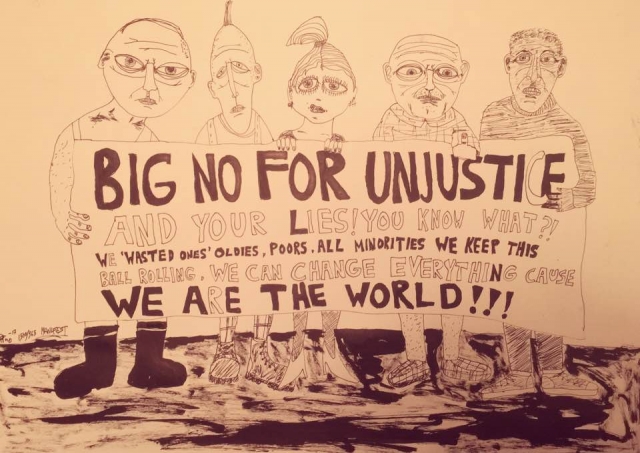 BIG NO FOR UNJUSTICE
AND YOUR LIES! YOU KNOW WHAT?!
WE 'WASTED ONES' OLDIES, POORS, ALL MINORITIES WE KEEP THIS
BALL ROLLING, WE CAN CHANGE EVERYTHING CAUSE
WE ARE THE WORLD!!!